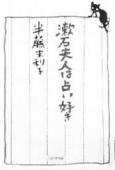 漱石夫人は占い好き
半藤末利子